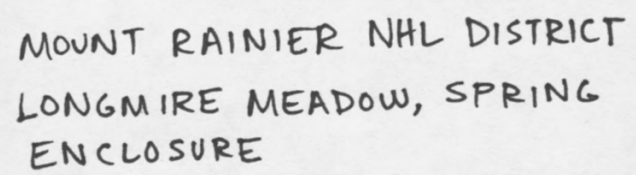 MOUNT RAINIER NHL DISTRICT
LONGMIRE MEADOW, SPRING
ENCLOSURE